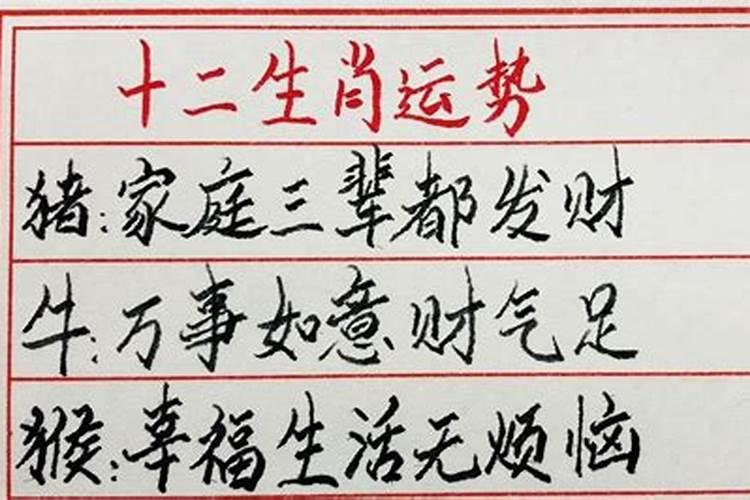 十二生肖运势
猪:家庭三辈都发财
牛:万事如意财气足
猴:幸福生活无烦恼